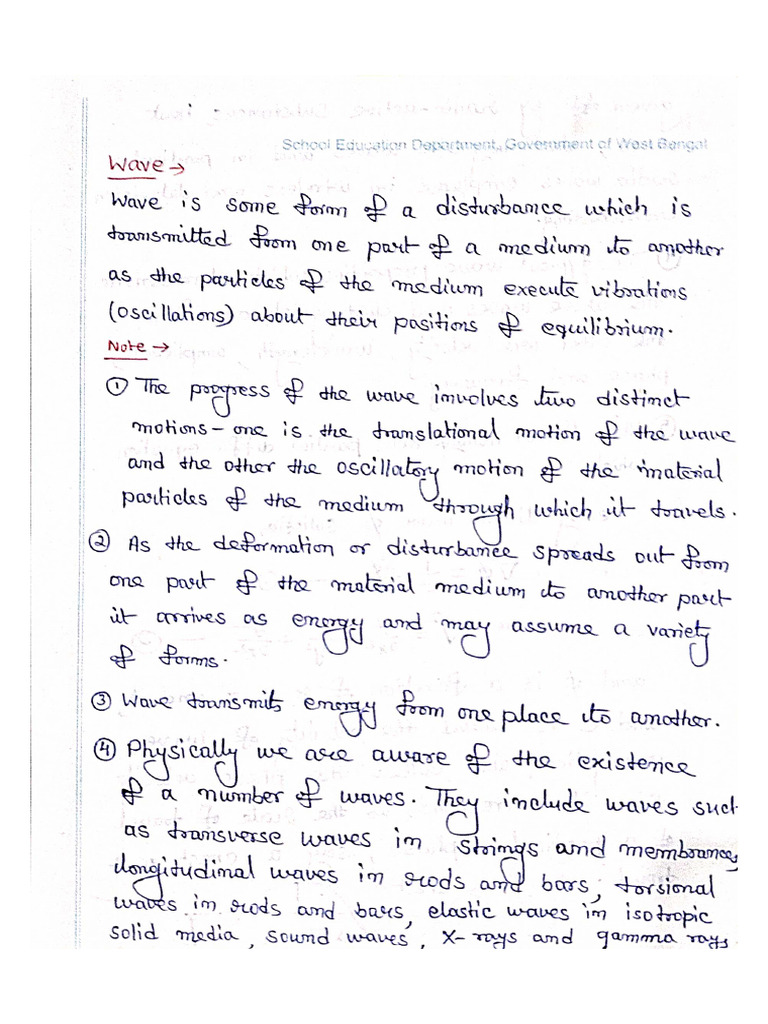 School Education Department, Government of West Bengal
Wave →
Wave is some form of a disturbance which is
transmitted from one part of a medium to another
as the particles of the medium execute vibrations
(oscillations) about their positions of equilibrium.
Note →
① The progress of the wave involves two distinct
motions - one is the translational motion of the wave
and the other the oscillatory motion of the material
particles of the medium through which it travels.
② As the deformation or disturbance spreads out from
one part of the material medium to another part
it arrives as energy and may assume a variety
of forms.
③ Wave transmits energy from one place to another.
④ Physically we are aware of the existence
of a number of waves. They include waves such
as transverse waves in strings and membranes,
longitudinal waves in rods and bars, torsional
waves in rods and bars, elastic waves in isotropic
solid media, sound waves, X-rays and gamma rays